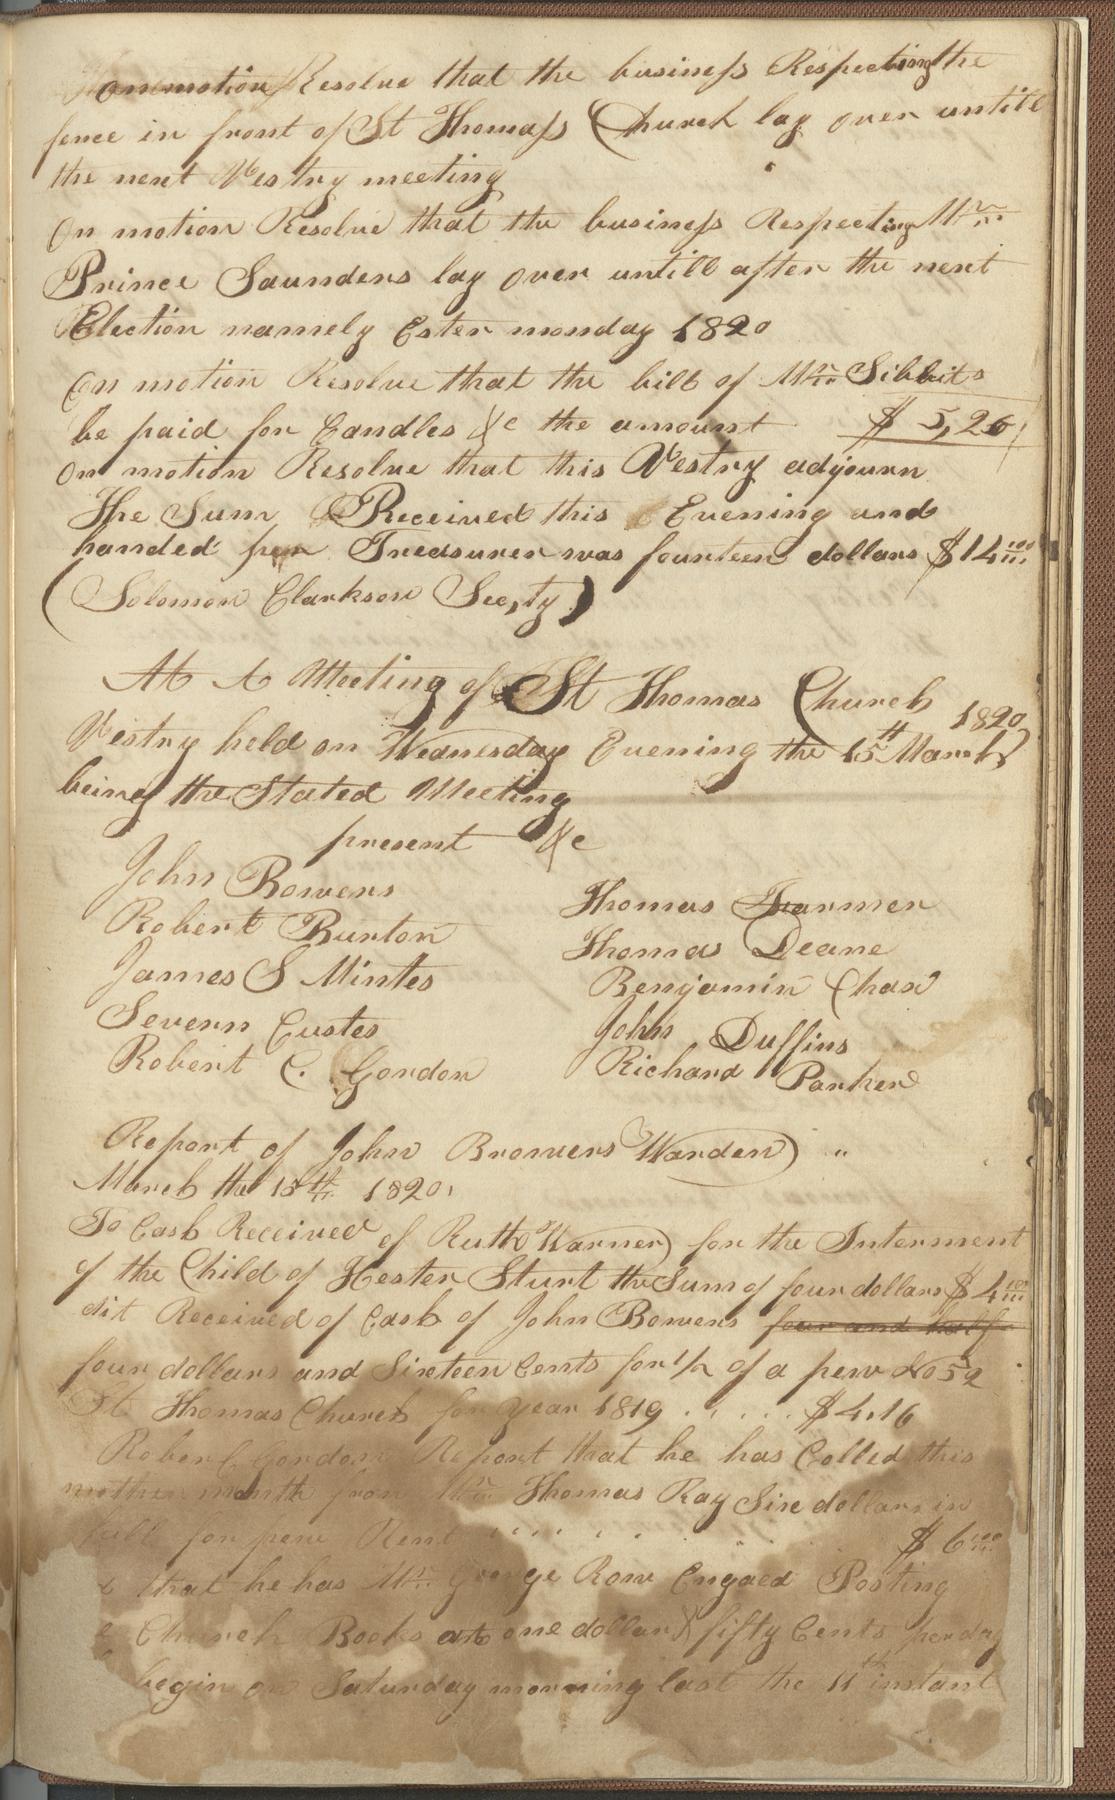 on motion Resolve that the business Respecting the
fence in front of St Thomass Church lay over untill
the next Vestry meeting
On motion Resolve that the business Respecting Mr
Prince Saunders lay over untill after the next
Election namely Ester monday 1820
On motion Resolve that the bill of Mr Sibbits
be paid for Candles &c the amount $ 5,26
On motion Resolve that this Vestry adjourn
The Sum Received this Evening and
handed per Treasurer was fourteen dollars $14 00
(Solomon Clarkson Sec,ty)
At A Meeting of St Thomas Church 1820
Vestry held on Wednesday Evening the 15th March
being the Stated Meeting
present &c
John Bowers
Robert Burton
James S Mintes
Severn Eustes
Robert C. Gordon
Thomas Farmer
Thomas Deane
Benjamin Chase
John Duffins
Richard Parker
Report of John Browers Warden) "
March the 15th 1820.
To Cash Received of Ruth Warner) for the Interment
of the Child of Hester Sturt the Sum of four dollars $ 4 00
dit Received of Cash of John Bowers four and half
four dollars and Sixteen Cents for 1/2 of a pew No 52
St Thomas Church for year 1819 . . . . . $4.16
Rober C Gordon Report that he has Colled this
month from Mr Thomas Ray Sixe dollars in
full for pew Rent . . . . . . $ 6 00
that he has Mr George Row Engaed Posting
Church Books at one dollar & fifty Cents per day
begin on Saturday morning last the 11th instant